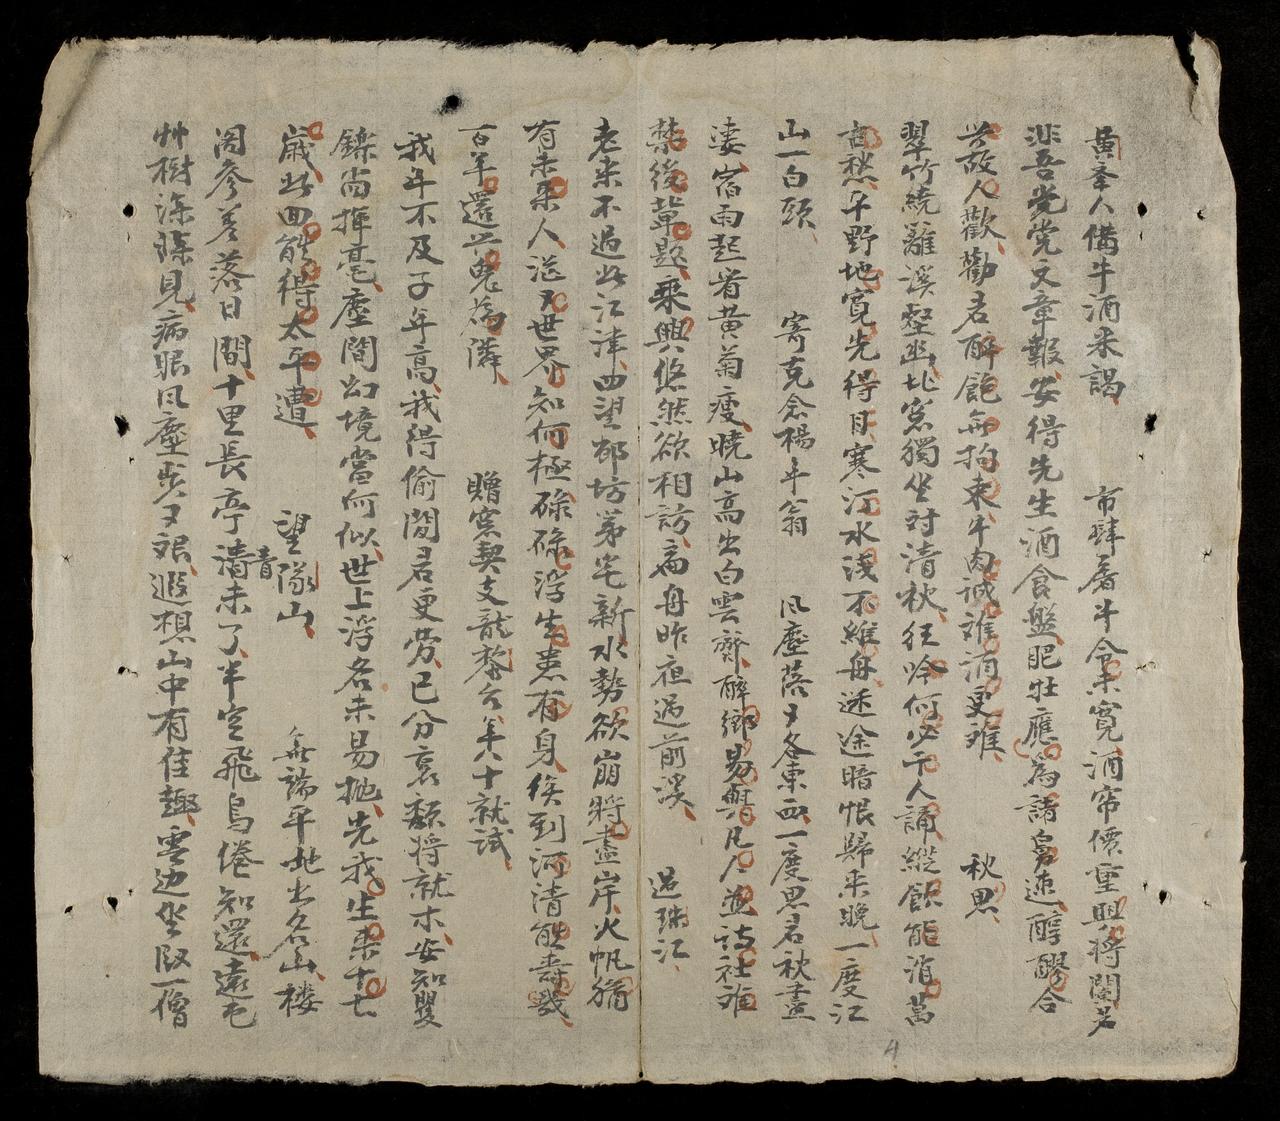 黃奉人備牛酒米謁 市肆屠牛令未寬酒帘價重興將闌若
非吾黨文章報安得先生酒食盤肥牡應為諸舅速醇醪合
共故人歡勸君醉飽無拘束牛肉誠难酒更难 秋思
翠竹繞籬溪壑幽北窓獨坐对清秋狂吟何必千人誦縱飲能消萬
古愁平野地寛先得月寒江水浅不維舟迷途暗恨歸来晚一度江
山一白頭 寄克念楊年翁 風塵落又各東西一度思君秋盡
凄宿雨起看黄菊瘦曉山高出白雲齊醉鄉易與凡人並詩社难
禁後輩題乘興悠然欲相訪扁舟昨夜過前溪 過珠江
老来不過此江津四望都坊第宅新水勢欲崩將盡岸火帆猶
有未来人茫又世界知何極碌碌浮生患有身俟到河清能壽幾
百年還共鬼為隣 贈窓契支龍黎台年八十就試
我年不及子年高我得偷閒君更劳已分衰颓将就木安知矍
鑠尚揮毫塵間幻境當何似世上浮名未易抛先我生来十七
歲此回能得太平遭 望隊山 無端平地出名山楼
阁參差落日間十里長亭清未了半空飛鳥倦知還遠屯
青
艸樹深深見病眼風塵步又艰遐想山中有佳趣雲边坐臥一僧